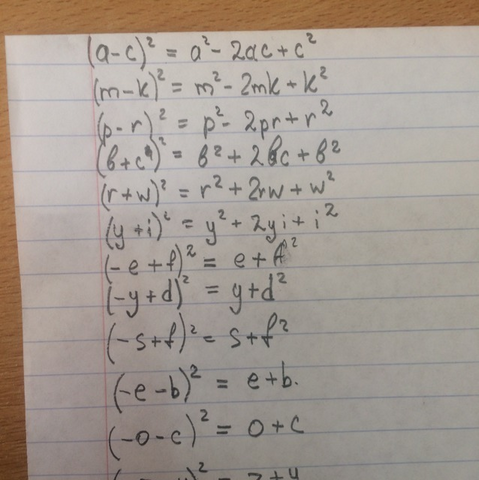 (a-c)² = a² - 2ac + c²
(m-k)² = m² - 2mk + k²
(p-r)² = p² - 2pr + r²
(в+c)² = в² + 2вc + в²
(r+w)² = r² + 2rw + w²
(y+i)² = y² + 2yi + i²
(-e+f)² = e+f²
(-y+d)² = y+d²
(-s+f)² = s+f²
(-e-b)² = e+b.
(-o-c)² = o+c